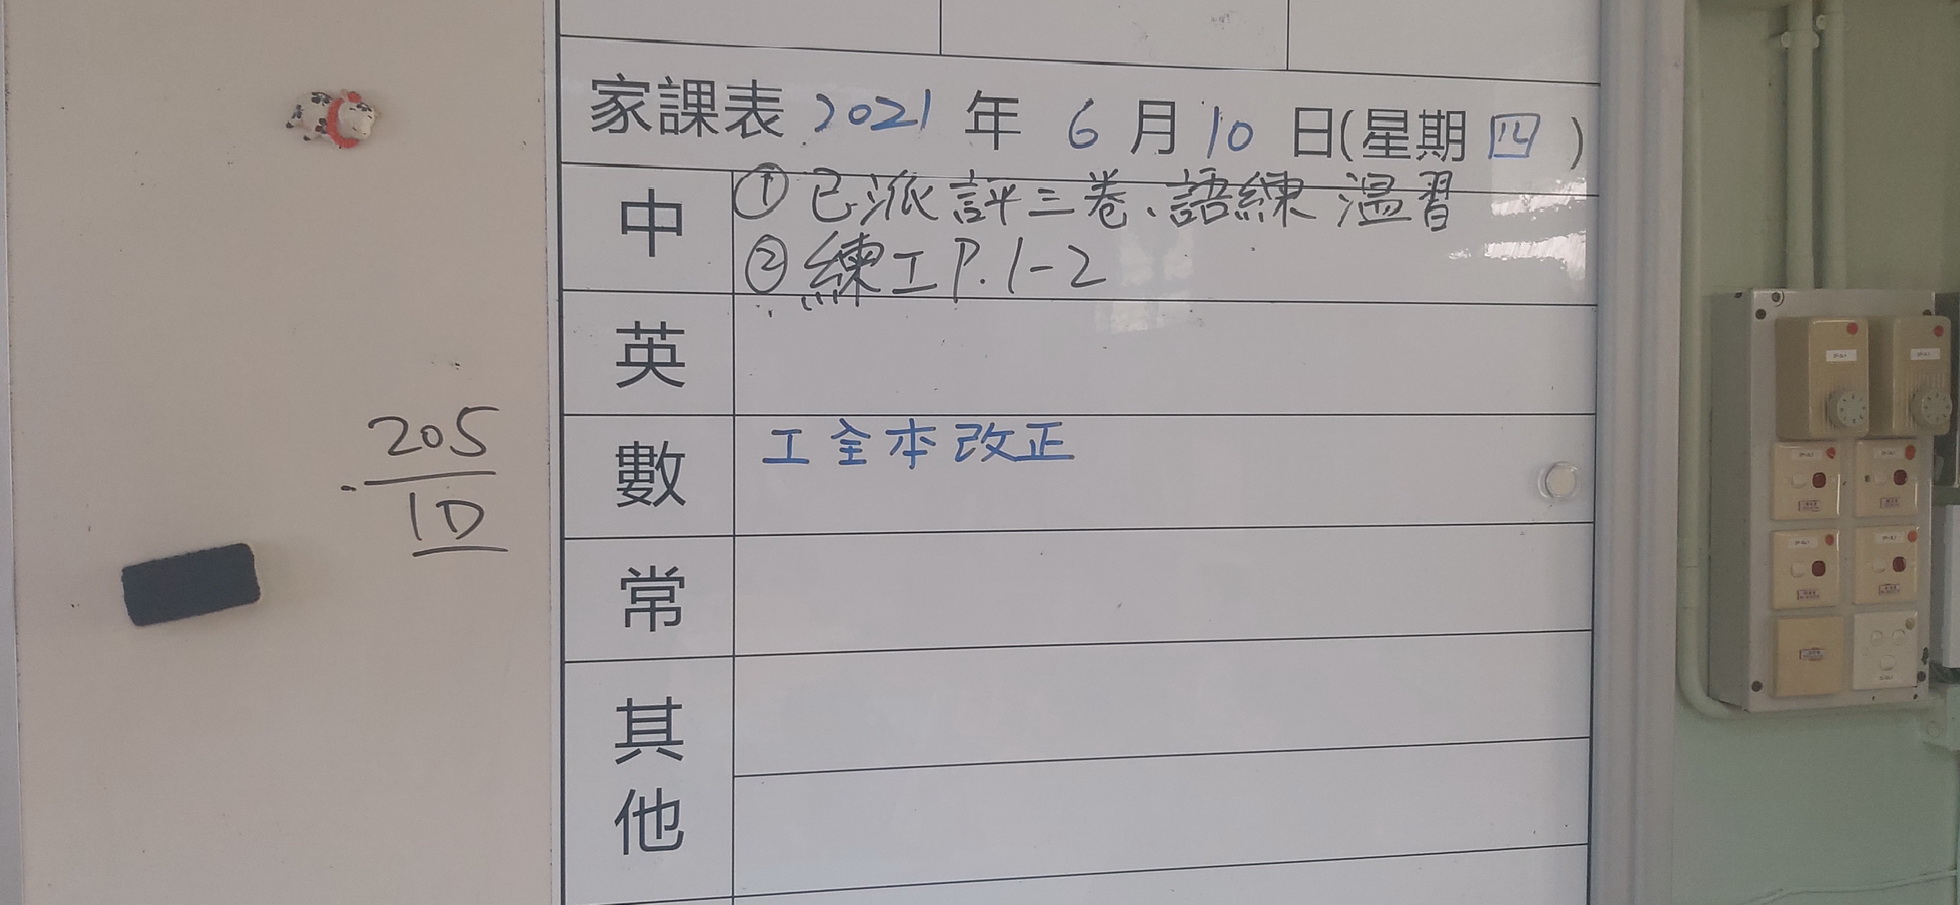 家課表 2021 年 6 月 10 日(星期 四 )
中
① 已派評三卷、語練 溫習
② 練工 P.1-2
英
數
工全本改正
常
其他
205
1D